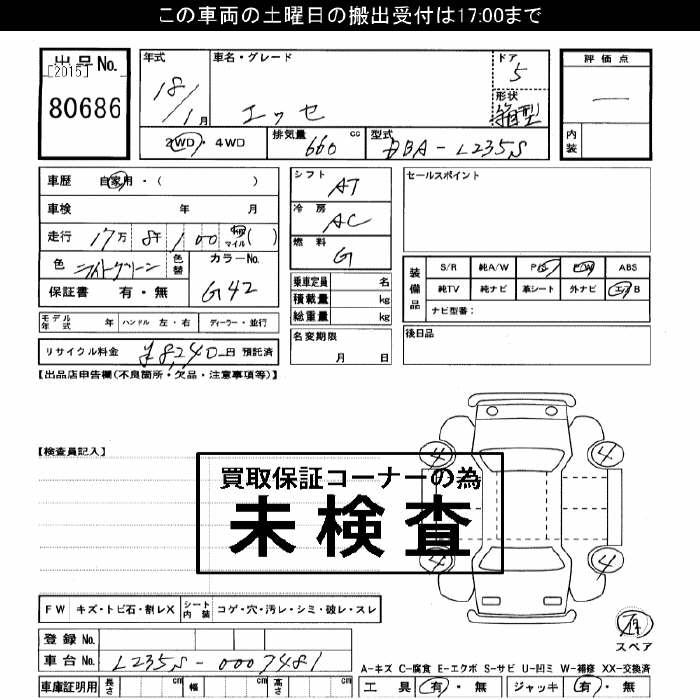 この車両の土曜日の搬出受付は17:00まで
出品No.
[2015]
80686
年式
18/1月
車名・グレード
エッセ
ドア
5
形状
箱型
評価点
—
内装
2WD・4WD
排気量
660 cc
型式
DBA-L235S
車歴 自家用・( )
車検 年 月
走行 17万 8千 100 マイル ( )
色 ライトグリーン
色替
カラーNo.
G42
保証書 有・無
シフト
AT
冷房
AC
燃料
G
セールスポイント
装備品
S/R 純A/W P/S P/W ABS
純TV 純ナビ 革シート 外ナビ エアB
ナビ型番:
乗車定員 名
積載量 kg
総重量 kg
モデル年式 年 ハンドル 左・右 ディーラー・並行
リサイクル料金 ¥8,240-円 預託済
名変期限
月 日
後日品
【出品店申告欄(不良箇所・欠品・注意事項等)】
【検査員記入】
買取保証コーナーの為
未検査
4
4
4
4
FW キズ・トビ石・割レX シート内装 コゲ・穴・汚レ・シミ・破レ・スレ
登録No.
車台No. L235S-0007481
スペア
A-キズ C-腐食 E-エクボ S-サビ U-凹ミ W-補修 XX-交換済
車庫証明用 長さ cm 幅 cm 高さ cm
工具 有・無 ジャッキ 有・無